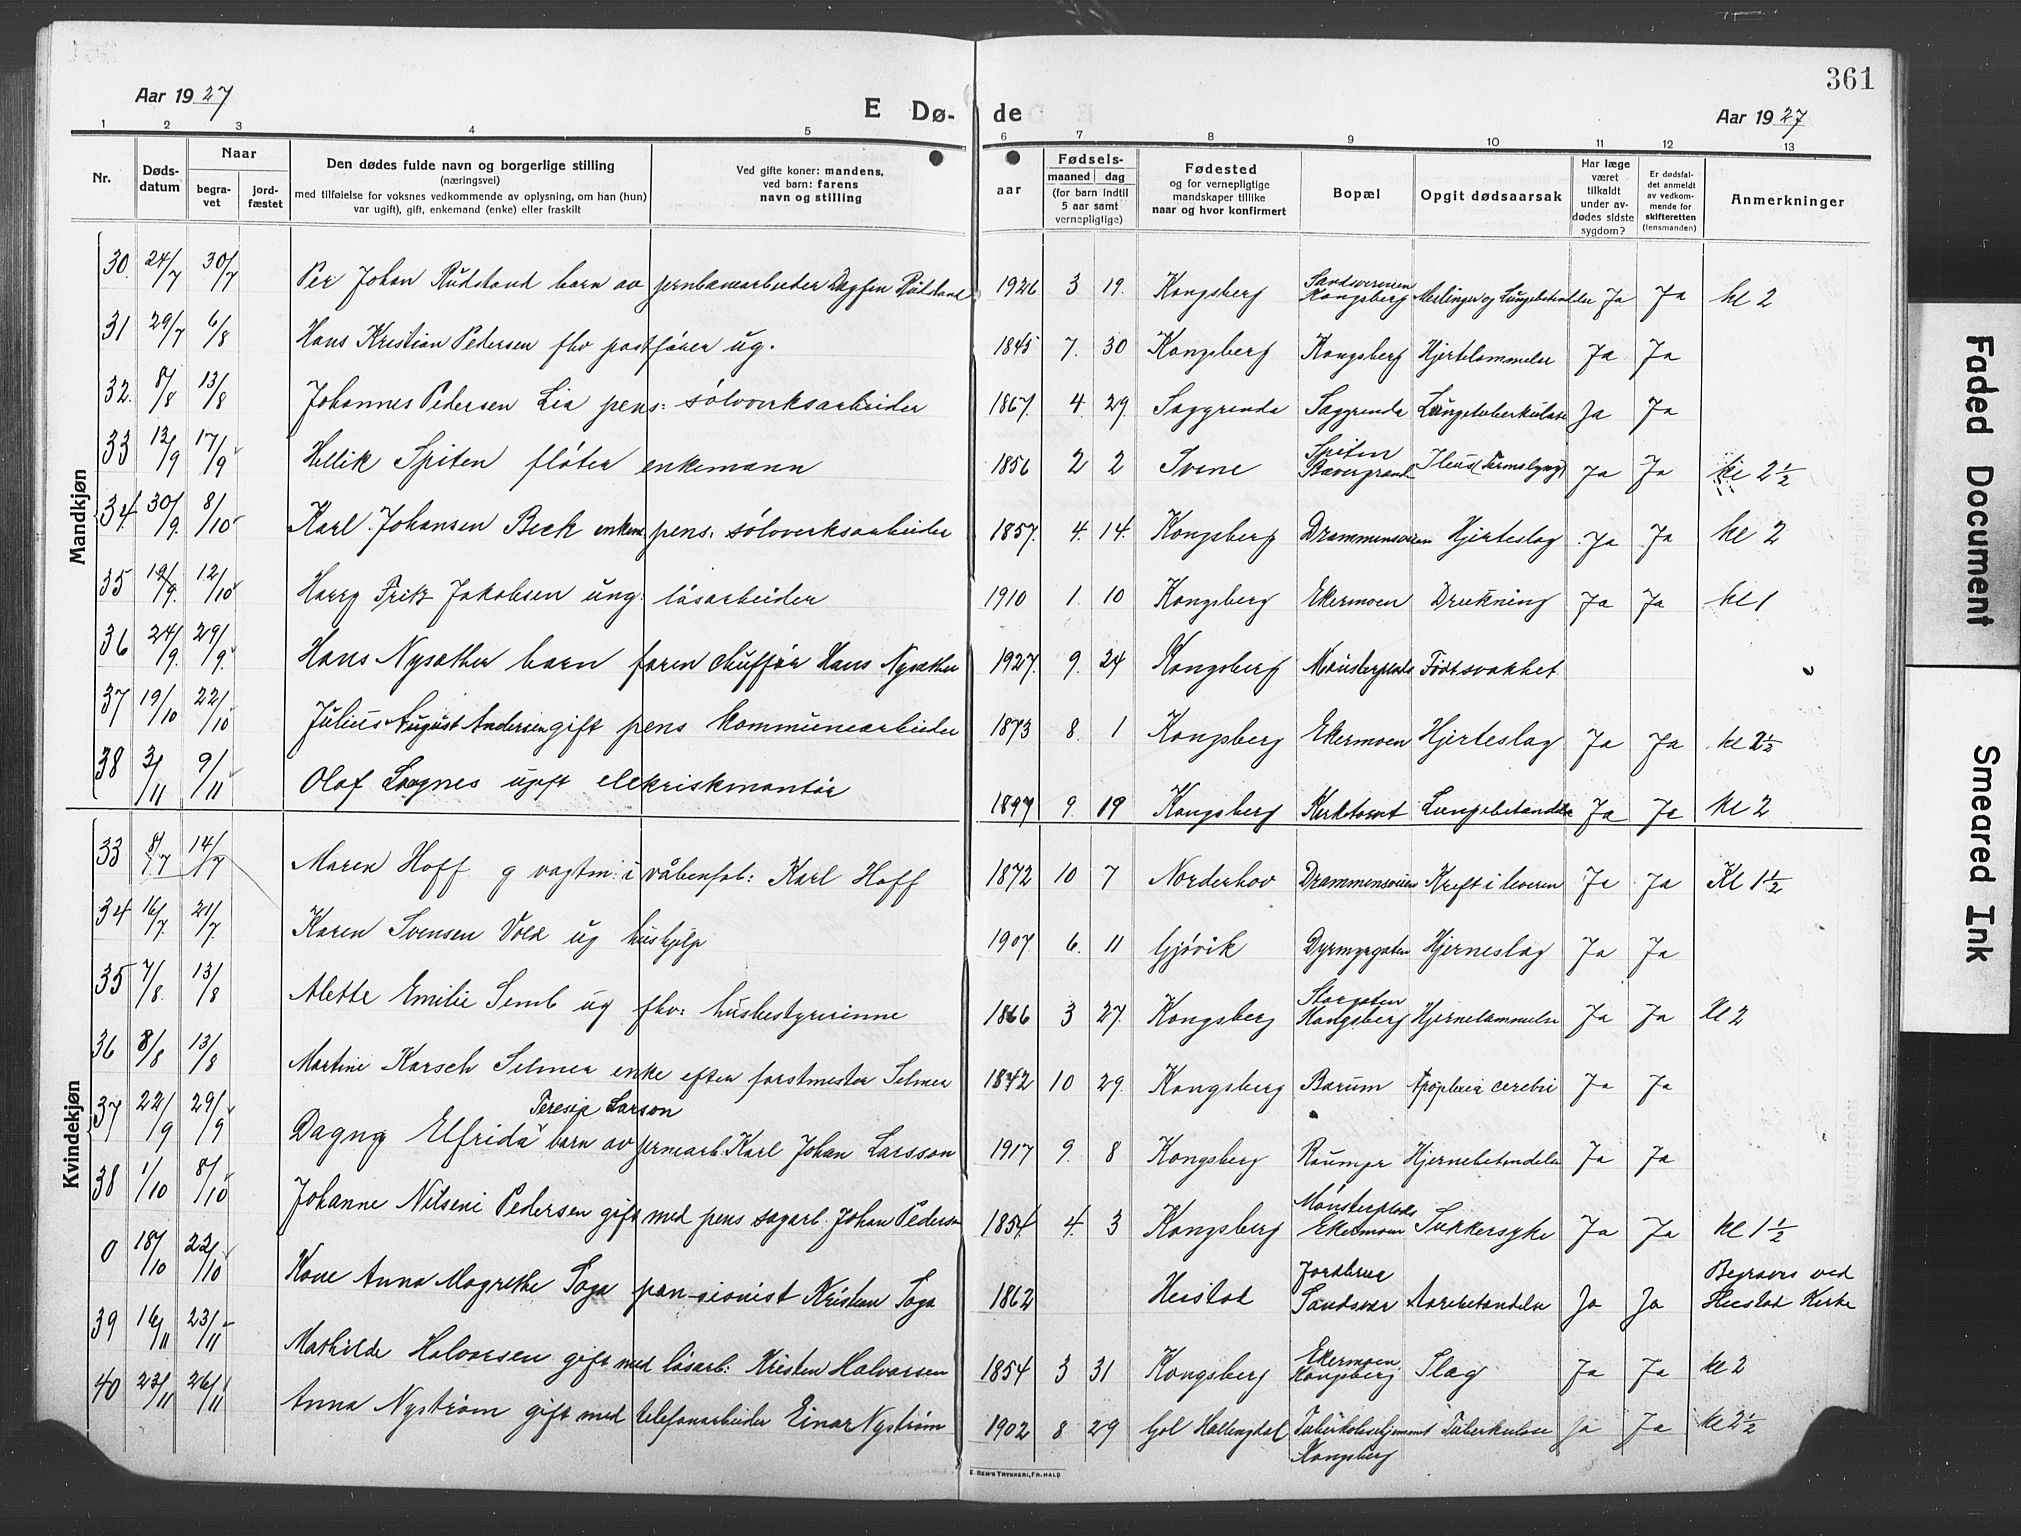 361
Aar 1927
E Dø-
de
Aar 1927
1 2 3 4 5 6 7 8 9 10 11 12 13
Nr.
Døds-
datum
Naar
begra-
vet
jord-
fæstet
Den dødes fulde navn og borgerlige stilling
(næringsvei)
med tilføielse for voksnes vedkommende av oplysning, om han (hun)
var ugift), gift, enkemand (enke) eller fraskilt
Ved gifte koner: mandens,
ved barn: farens
navn og stilling
aar
Fødsels-
maaned dag
(for barn indtil
5 aar samt
vernepligtige)
Fødested
og for vernepligtige
mandskaper tillike
naar og hvor konfirmert
Bopæl
Opgit dødsaarsak
Har læge
været
tilkaldt
under av-
dødes sidste
sygdom?
Er dødsfal-
det anmeldt
av vedkom-
mende for
skifteretten
(lensmanden)
Anmerkninger
Mandkjøn
30. 24/7 30/7 Per Johan Rudstand barn av jernbanearbeider Dagfin Rudstand 1926 3 19. Kongsberg Sandsverveien Kongsberg og Lungebetendelse Ja Ja kl 2
31 29/7 6/8 Hans Kristian Pedersen fhv postfører ug. 1845 7. 30 Kongsberg Kongsberg Hjertelammelse Ja Ja
32. 8/8 13/8 Johannes Pedersen Lia pens: sølvverksarbeider 1867. 4. 29. Saggrenda Saggrenda Lungetuberkulose Ja Ja
33 12/9 17/9 Hellik Spiten fløter enkemann 1856 2 2 Svene Spiten Bevergrend Ileus (Tarmslyng) Ja Ja kl 2½
34. 30/9. 8/10 Karl Johansen Beck enkem. pens: sølvverksarbeider 1857. 4. 14. Kongsberg Drammensveien Hjerteslag Ja Ja kl 2
35 19/9. 12/10 Harry Fritz Jakobsen ung: løsarbeider 1910 1. 10 Kongsberg Ekermoen Drukning Ja Ja kl 1
36 24/9. 29/9. Hans Nysæther barn faren chuffør Hans Nysæther 1927. 9. 24 Kongsberg Mønsterplads Fødtsvakhet
37 19/10 22/10 Julius August Andersen gift pens kommunearbeider 1873 8. 1 Kongsberg Ekermoen Hjerteslag Ja Ja kl 2½
38 3/11 9/11 Olaf Lognes ugift elekriskmontør 1897 9. 19 Kongsberg Kirketorvet Lungebetendelse Ja Ja kl 2
Kvindekjøn
33 8/7 14/7 Maren Hoff g vagtm: i våbenfab: Karl Hoff 1872 10 7 Norderhov Drammensveien Kreft i leveren Ja Ja Kl 1½
34 16/7. 21/7. Karen Svensen Vold ug hushjelp 1907 6. 11 Gjøvik Dyrmyrgaten Hjerneslag Ja Ja
35 7/8. 13/8 Alette Emilie Semb ug fhv: husbestyrerinne 1866 3 27. Kongsberg Storgaten Kongsberg Hjernelammelse Ja Ja kl 2
36 8/8 13/8 Martine Karsch Selmer enke efter forstmester Selmer 1842 10 29. Kongsberg Bærum Apoplexia cerebri Ja Ja
37 22/9 29/9 Dagny Elfrida Teresia Larson barn av jernarb. Karl Johan Larsson 1917 9. 8 Kongsberg Raumyr Hjernebetendelse Ja Ja
38 1/10 8/10 Johanne Nilseni Pedersen gift med pens sagarb. Johan Pedersen 1854 4. 3 Kongsberg Mønsterplads Ekermoen Sukkersyke Ja Ja kl 1½
0 18/10 22/10 Kone Anna Magrethe Saga pensionist Kristian Saga 1862 Heistad Jordbrua Sandsvær Aarebetendelse Ja Ja Begraves ved Heistad Kirke
39 16/11 23/11 Mathilde Halvorsen gift med løsarb: Kristen Halvorsen 1854 3 31 Kongsberg Ekermoen, Kongsberg Slag Ja Ja kl 2
40 23/11 26/11 Anna Nystrøm gift med telefonarbeider Einar Nystrøm 1902 8 29 Gol Hallingdal Tuberkolosehjemmet Kongsberg Tuberkulose Ja Ja kl 2½
TRYKKERI, FR. HALD
Faded Document
Smeared Ink